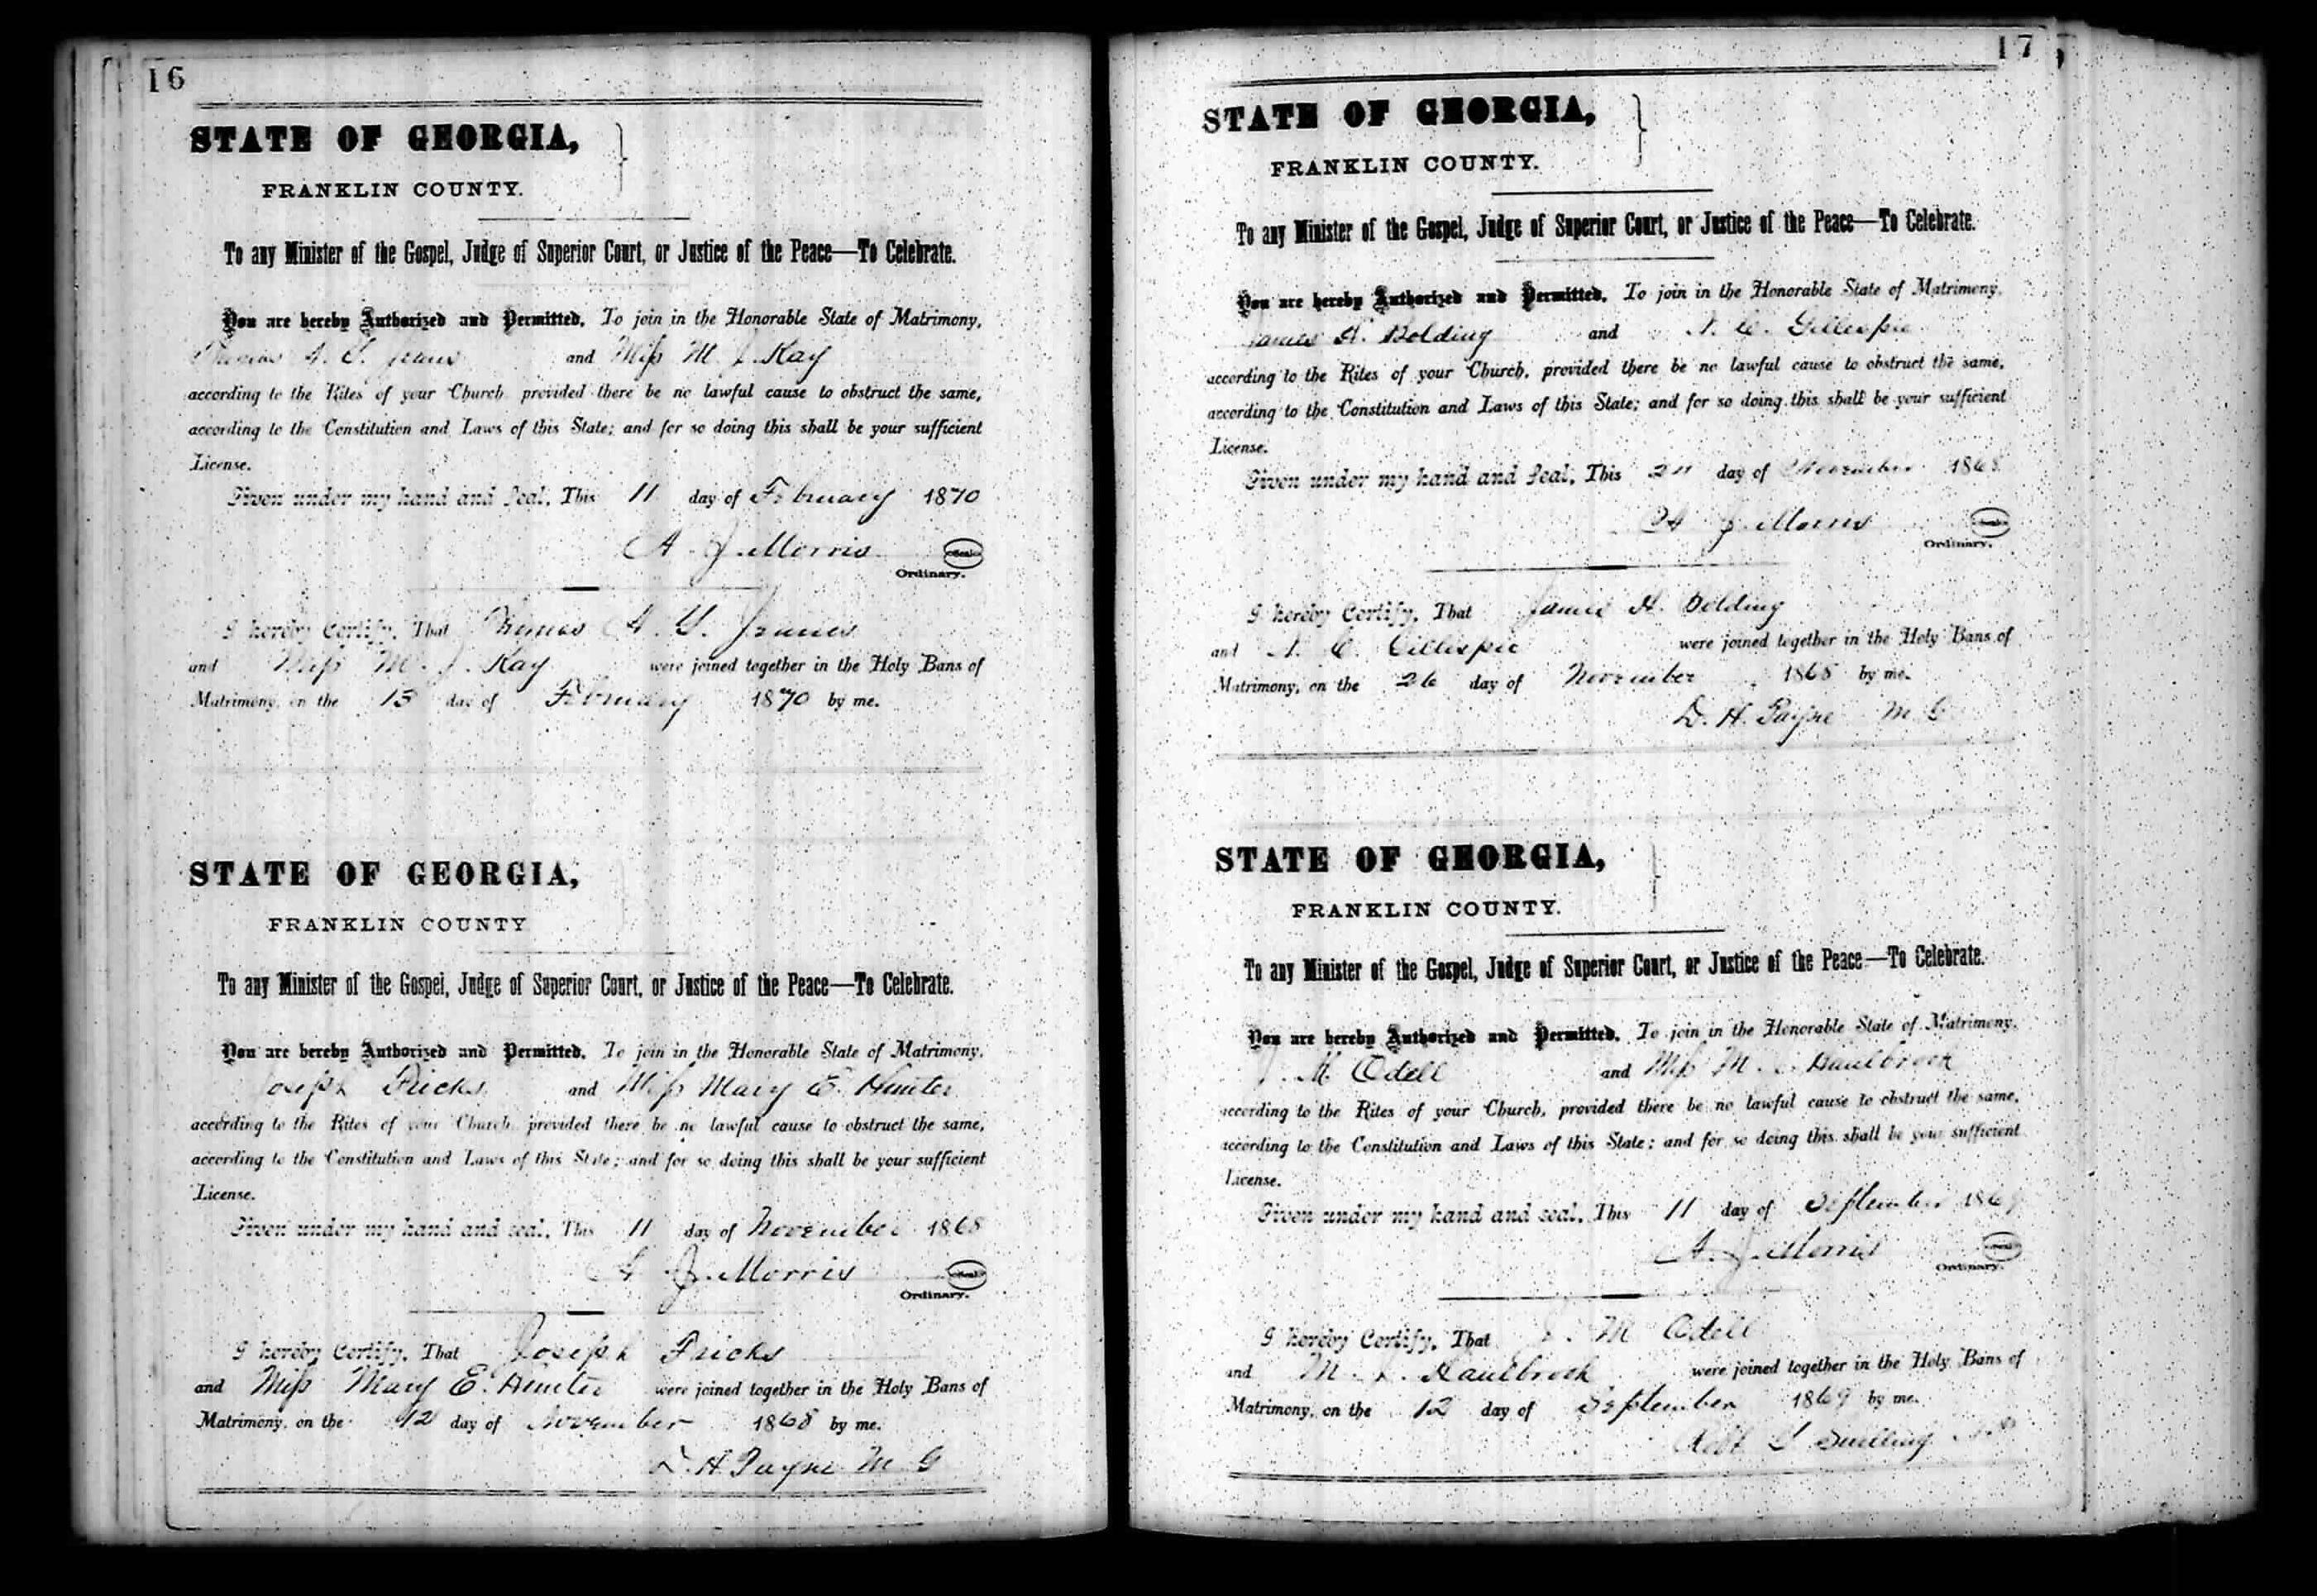 16
STATE OF GEORGIA,
FRANKLIN COUNTY.
To any Minister of the Gospel, Judge of Superior Court, or Justice of the Peace—To Celebrate.
You are hereby Authorized and Permitted, To join in the Honorable State of Matrimony,
Thomas A. and Miss M. J. Kay
according to the Rites of your Church provided there be no lawful cause to obstruct the same,
according to the Constitution and Laws of this State; and for so doing this shall be your sufficient
License.
Given under my hand and Seal, This 11 day of February 1870
A. J. Morris Seal
Ordinary.
I hereby Certify, That Thomas A.
and Miss M. J. Kay were joined together in the Holy Bans of
Matrimony, on the 13 day of February 1870 by me.
STATE OF GEORGIA,
FRANKLIN COUNTY
To any Minister of the Gospel, Judge of Superior Court, or Justice of the Peace—To Celebrate.
You are hereby Authorized and Permitted, To join in the Honorable State of Matrimony,
Joseph Fricks and Miss Mary E. Hunter
according to the Rites of your Church provided there be no lawful cause to obstruct the same,
according to the Constitution and Laws of this State; and for so doing this shall be your sufficient
License.
Given under my hand and seal, This 11 day of November 1868
A J. Morris Seal
Ordinary.
I hereby Certify, That Joseph Fricks
and Miss Mary E. Hunter were joined together in the Holy Bans of
Matrimony, on the 12 day of November 1868 by me.
D. H. Payne M G
17
STATE OF GEORGIA,
FRANKLIN COUNTY.
To any Minister of the Gospel, Judge of Superior Court, or Justice of the Peace—To Celebrate.
You are hereby Authorized and Permitted, To join in the Honorable State of Matrimony,
James A. Bolding and C. Gillespie
according to the Rites of your Church, provided there be no lawful cause to obstruct the same,
according to the Constitution and Laws of this State; and for so doing this shall be your sufficient
License.
Given under my hand and Seal, This day of November 1868
A J. Morris Seal
Ordinary.
I hereby Certify, That James A. Bolding
and C. Gillespie were joined together in the Holy Bans of
Matrimony, on the 26 day of November 1868 by me.
D. H. Payne M G
STATE OF GEORGIA,
FRANKLIN COUNTY.
To any Minister of the Gospel, Judge of Superior Court, or Justice of the Peace—To Celebrate.
You are hereby Authorized and Permitted, To join in the Honorable State of Matrimony,
J. M. Odell and Miss M. Haulbrook
according to the Rites of your Church, provided there be no lawful cause to obstruct the same,
according to the Constitution and Laws of this State; and for so doing this shall be your sufficient
License.
Given under my hand and seal, This 11 day of September 1869
A. J. Morris Seal
Ordinary.
I hereby Certify, That J. M Odell
and M. Haulbrook were joined together in the Holy Bans of
Matrimony, on the 12 day of September 1869 by me.
Robt